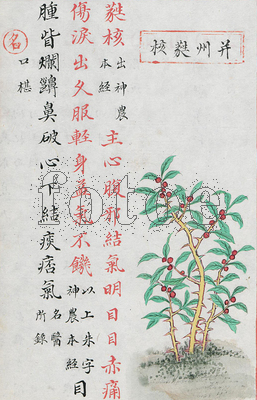 并州蕤核
蕤核出神農本經主心腹邪結氣明目目赤痛
傷淚出久服輕身益氣不饑以上朱字神農本經目
腫眥爛齆鼻破心下結痰痞氣名醫所錄
名
口棋
fotoe